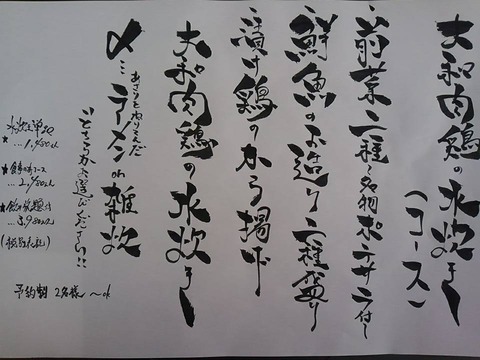 大和肉鶏の水炊き
(コース)
・前菜二種〜名物ポテサラ付〜
・鮮魚のお造り二種盛り
・漬け鶏のから揚げ
大和肉鶏の水炊き
〆…ラーメン or 雑炊
あさりをねりこんだ
"どちらかお選びください!!
★水炊き単品
…1,480えん
★食事のみコース
…2,480えん
★飲み放題付
…3,980えん
(税別表記)
予約制 2名様〜ok